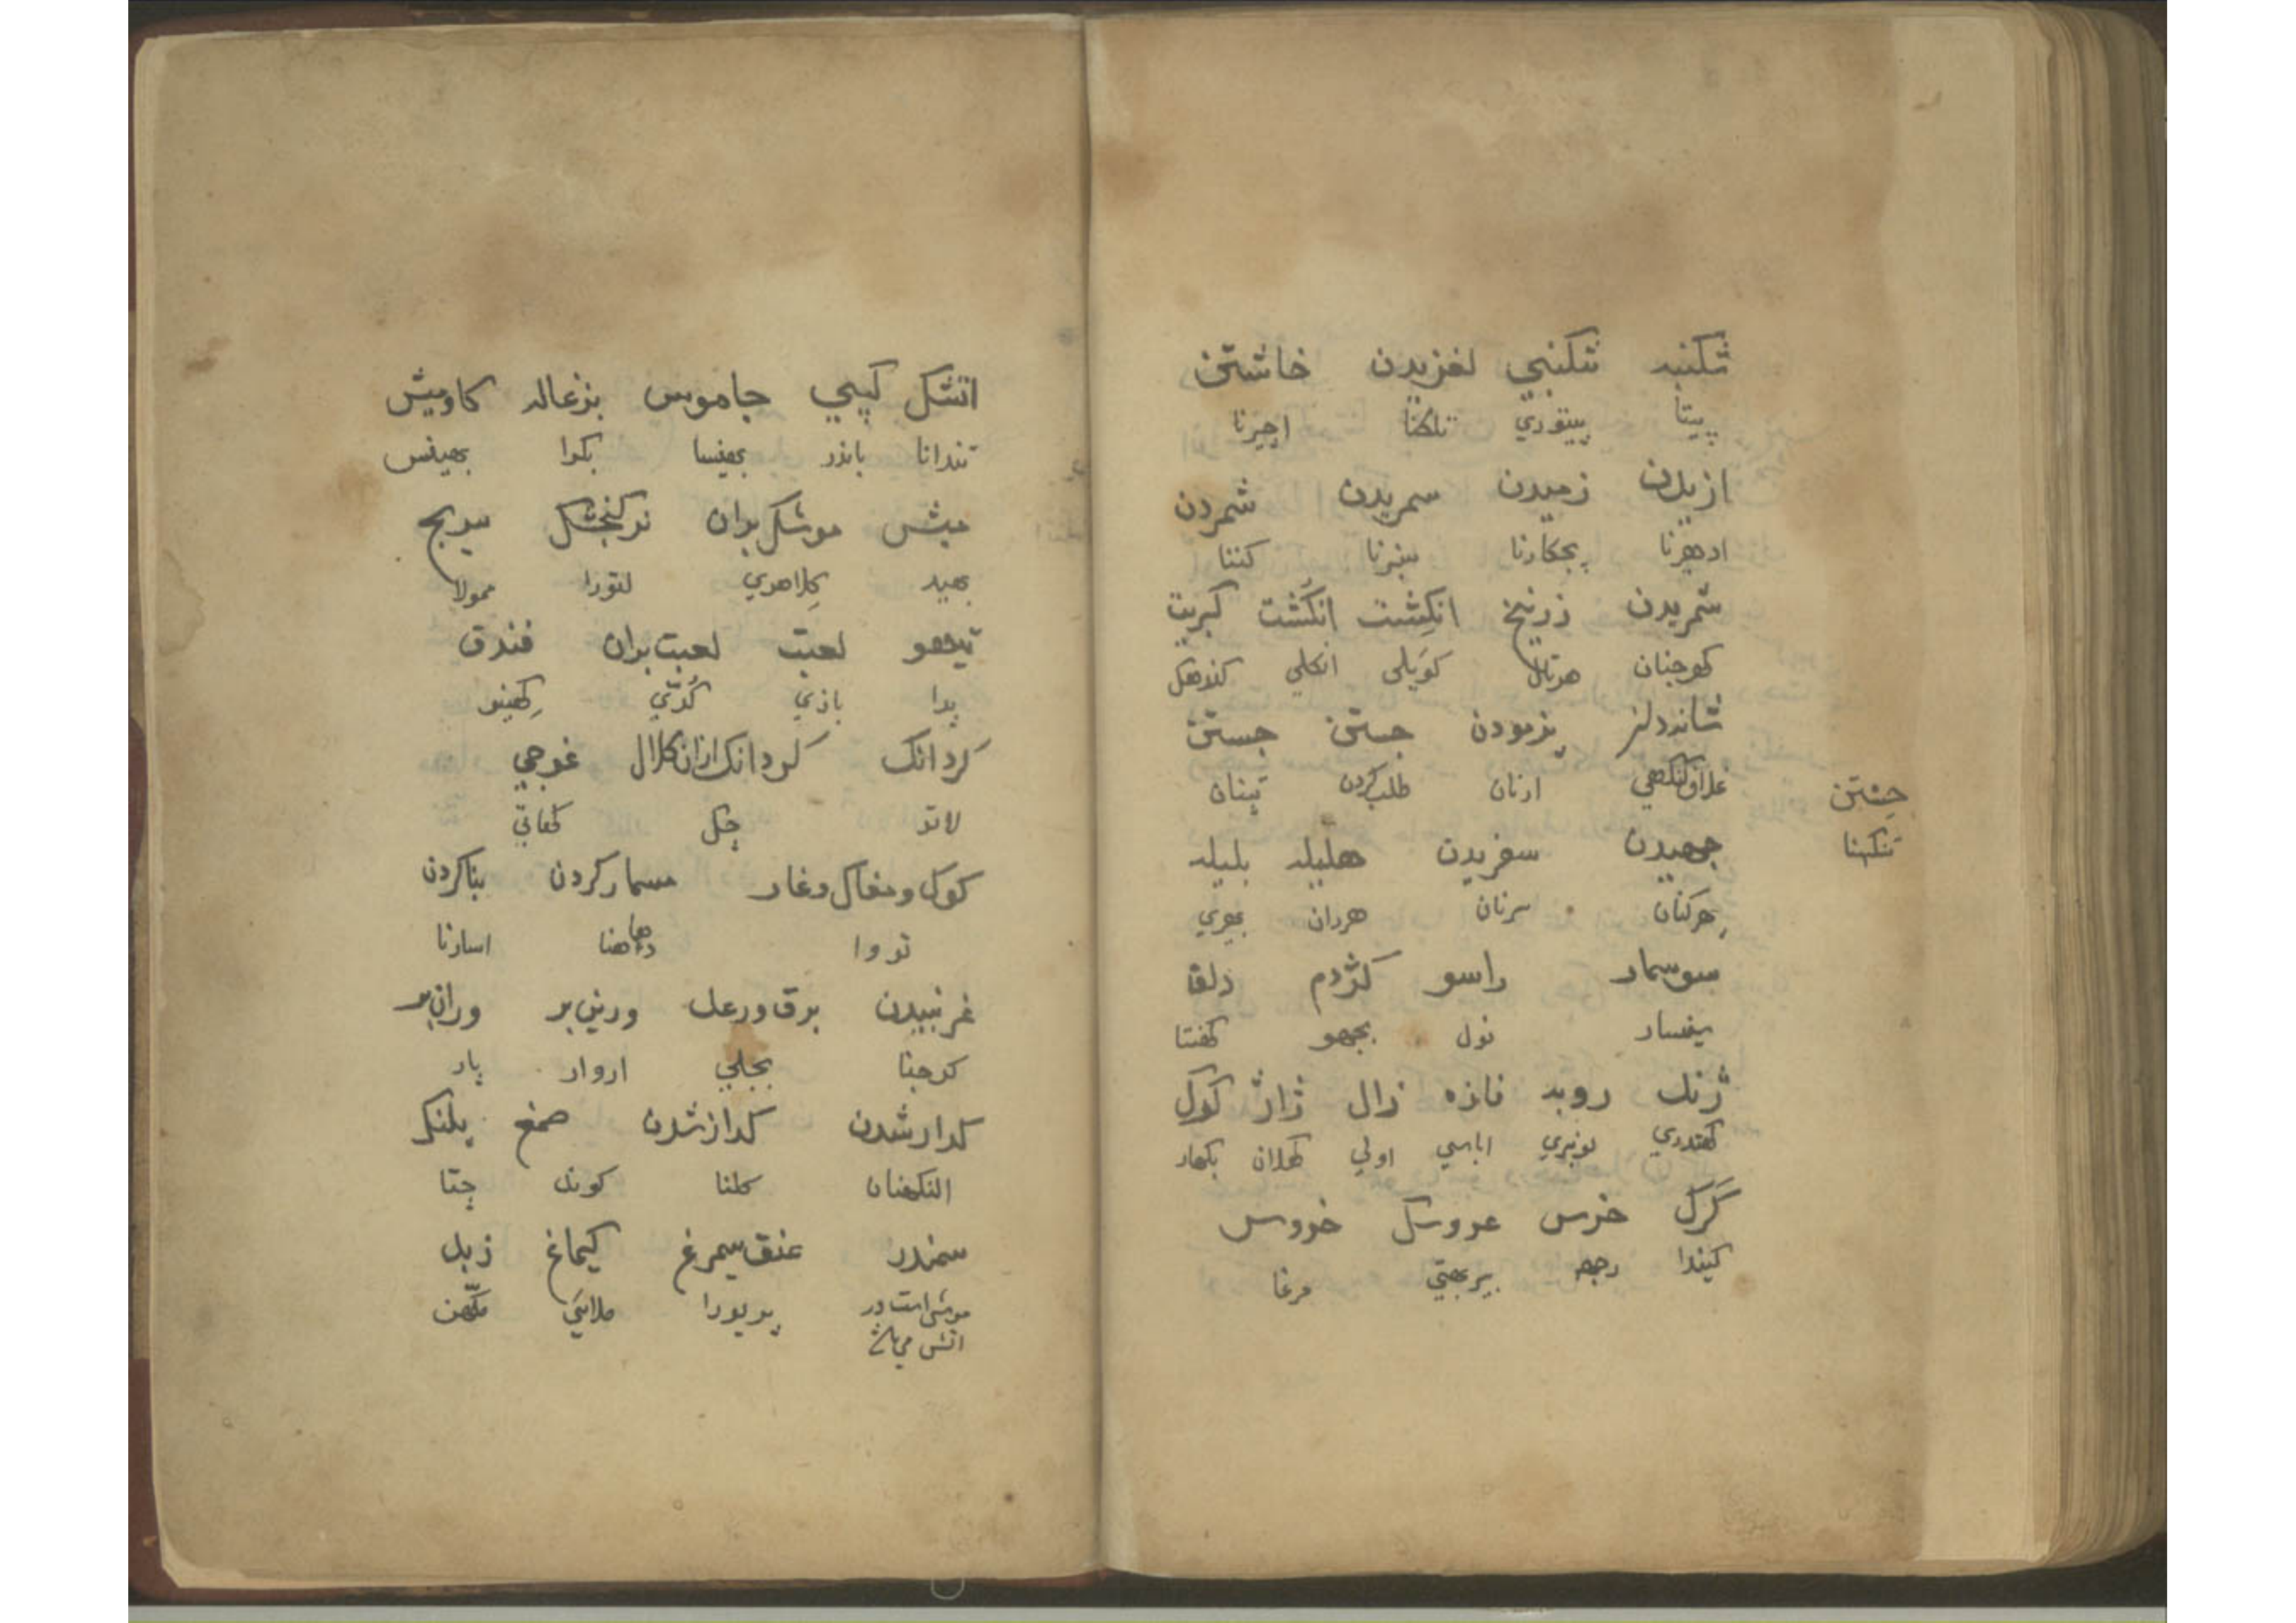 شکنبه شکنبي لغزیدن خاشتن
پیتا پیتوري تلکنا اچیرنا
ازیدن زمیدن سمریدن شمردن
ادهرنا بچکارنا سنبرنا کننا
شمریدن زرنیخ انکِشت انکُشت کبریت
کوجنان هرتال کویلی انکلي کندهک
شانه دلنر پزمودن جستن جستن
غلاف کنکهي ارنان طلب کردن تپنان
چستن
تنکهنا
جهیدن سفریدن هلیله بلیله
هرکنان سرنان هردان بهیري
سوسمار راسو کژدم دلقا
سفسار نول بچهو کفنتا
ژنک روبه فازه زال ژاژ کوک
کهندري لونبري اباسي اولي کهلان بکهار
کرک خرس عروسک خروس
کیندا رچهه بیربهتي مرغا
اتشک کپي جاموس بزغاله کاومیش
تندانا باندر بهنیسا بکرا بهینس
میش موشک پران نرکنجشک سریچ
بهید کلاهري لتورا ممولا
تیهو لعبت لعبت بران فندق
پدا بازي کُدّي کهینو
کردانک کردانک ازان کلال غوجي
لاتو چک کهاتي
کوک و مغاک و غار مسمار کردن بنا کردن
تووا دهاهنا اسارنا
غرنبیدن برق و رعد ورین بر وران بر
کرجنا بجلي اروار پار
کدار شدن کداز شدن صمغ پلنک
النکهنان کلنا کوند چتا
سمندر عنق سیمرغ کیماغ زبد
موشی است در اتش مي باشد پرپورا ملائي مکّهن